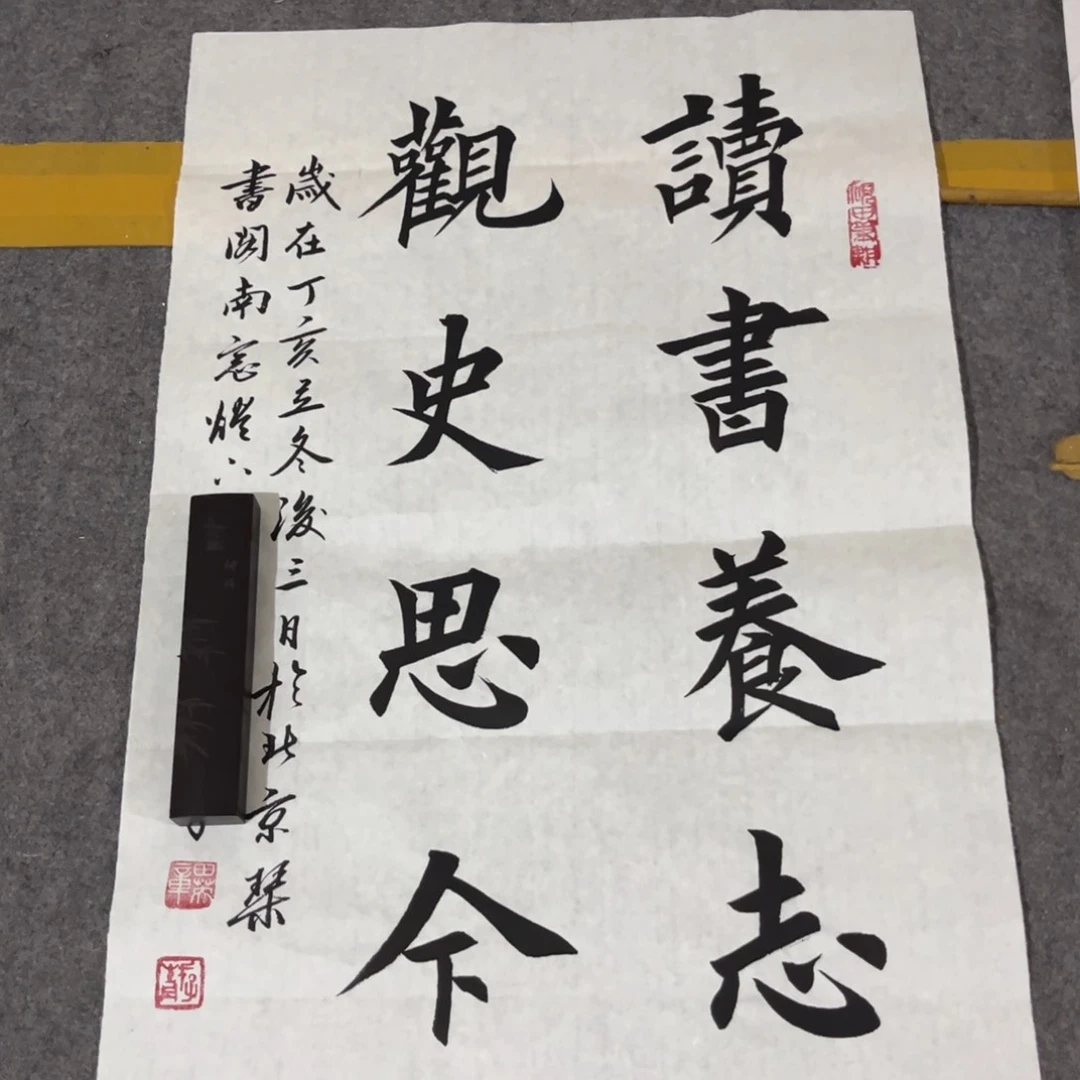 讀書養志
觀史思今
歲在丁亥立冬後三日於北京琴
書閣南窓燈下